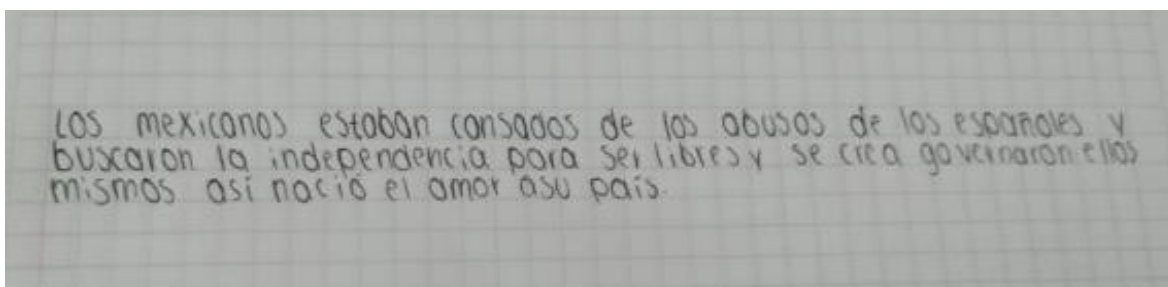 Los mexicanos estaban cansados de los abusos de los españoles y
buscaron la independencia para ser libres y se crea governaron ellos
mismos así nació el amor asu país.